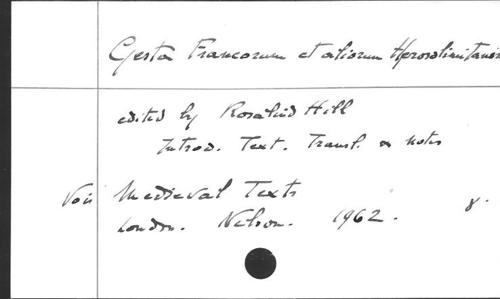 Gesta Francorum et aliorum Hierosolimitanor
edited by Rosalind Hill
Introd. Text. Transl. & notes
Voir Medieval Texts
London. Nelson. 1962. 8.